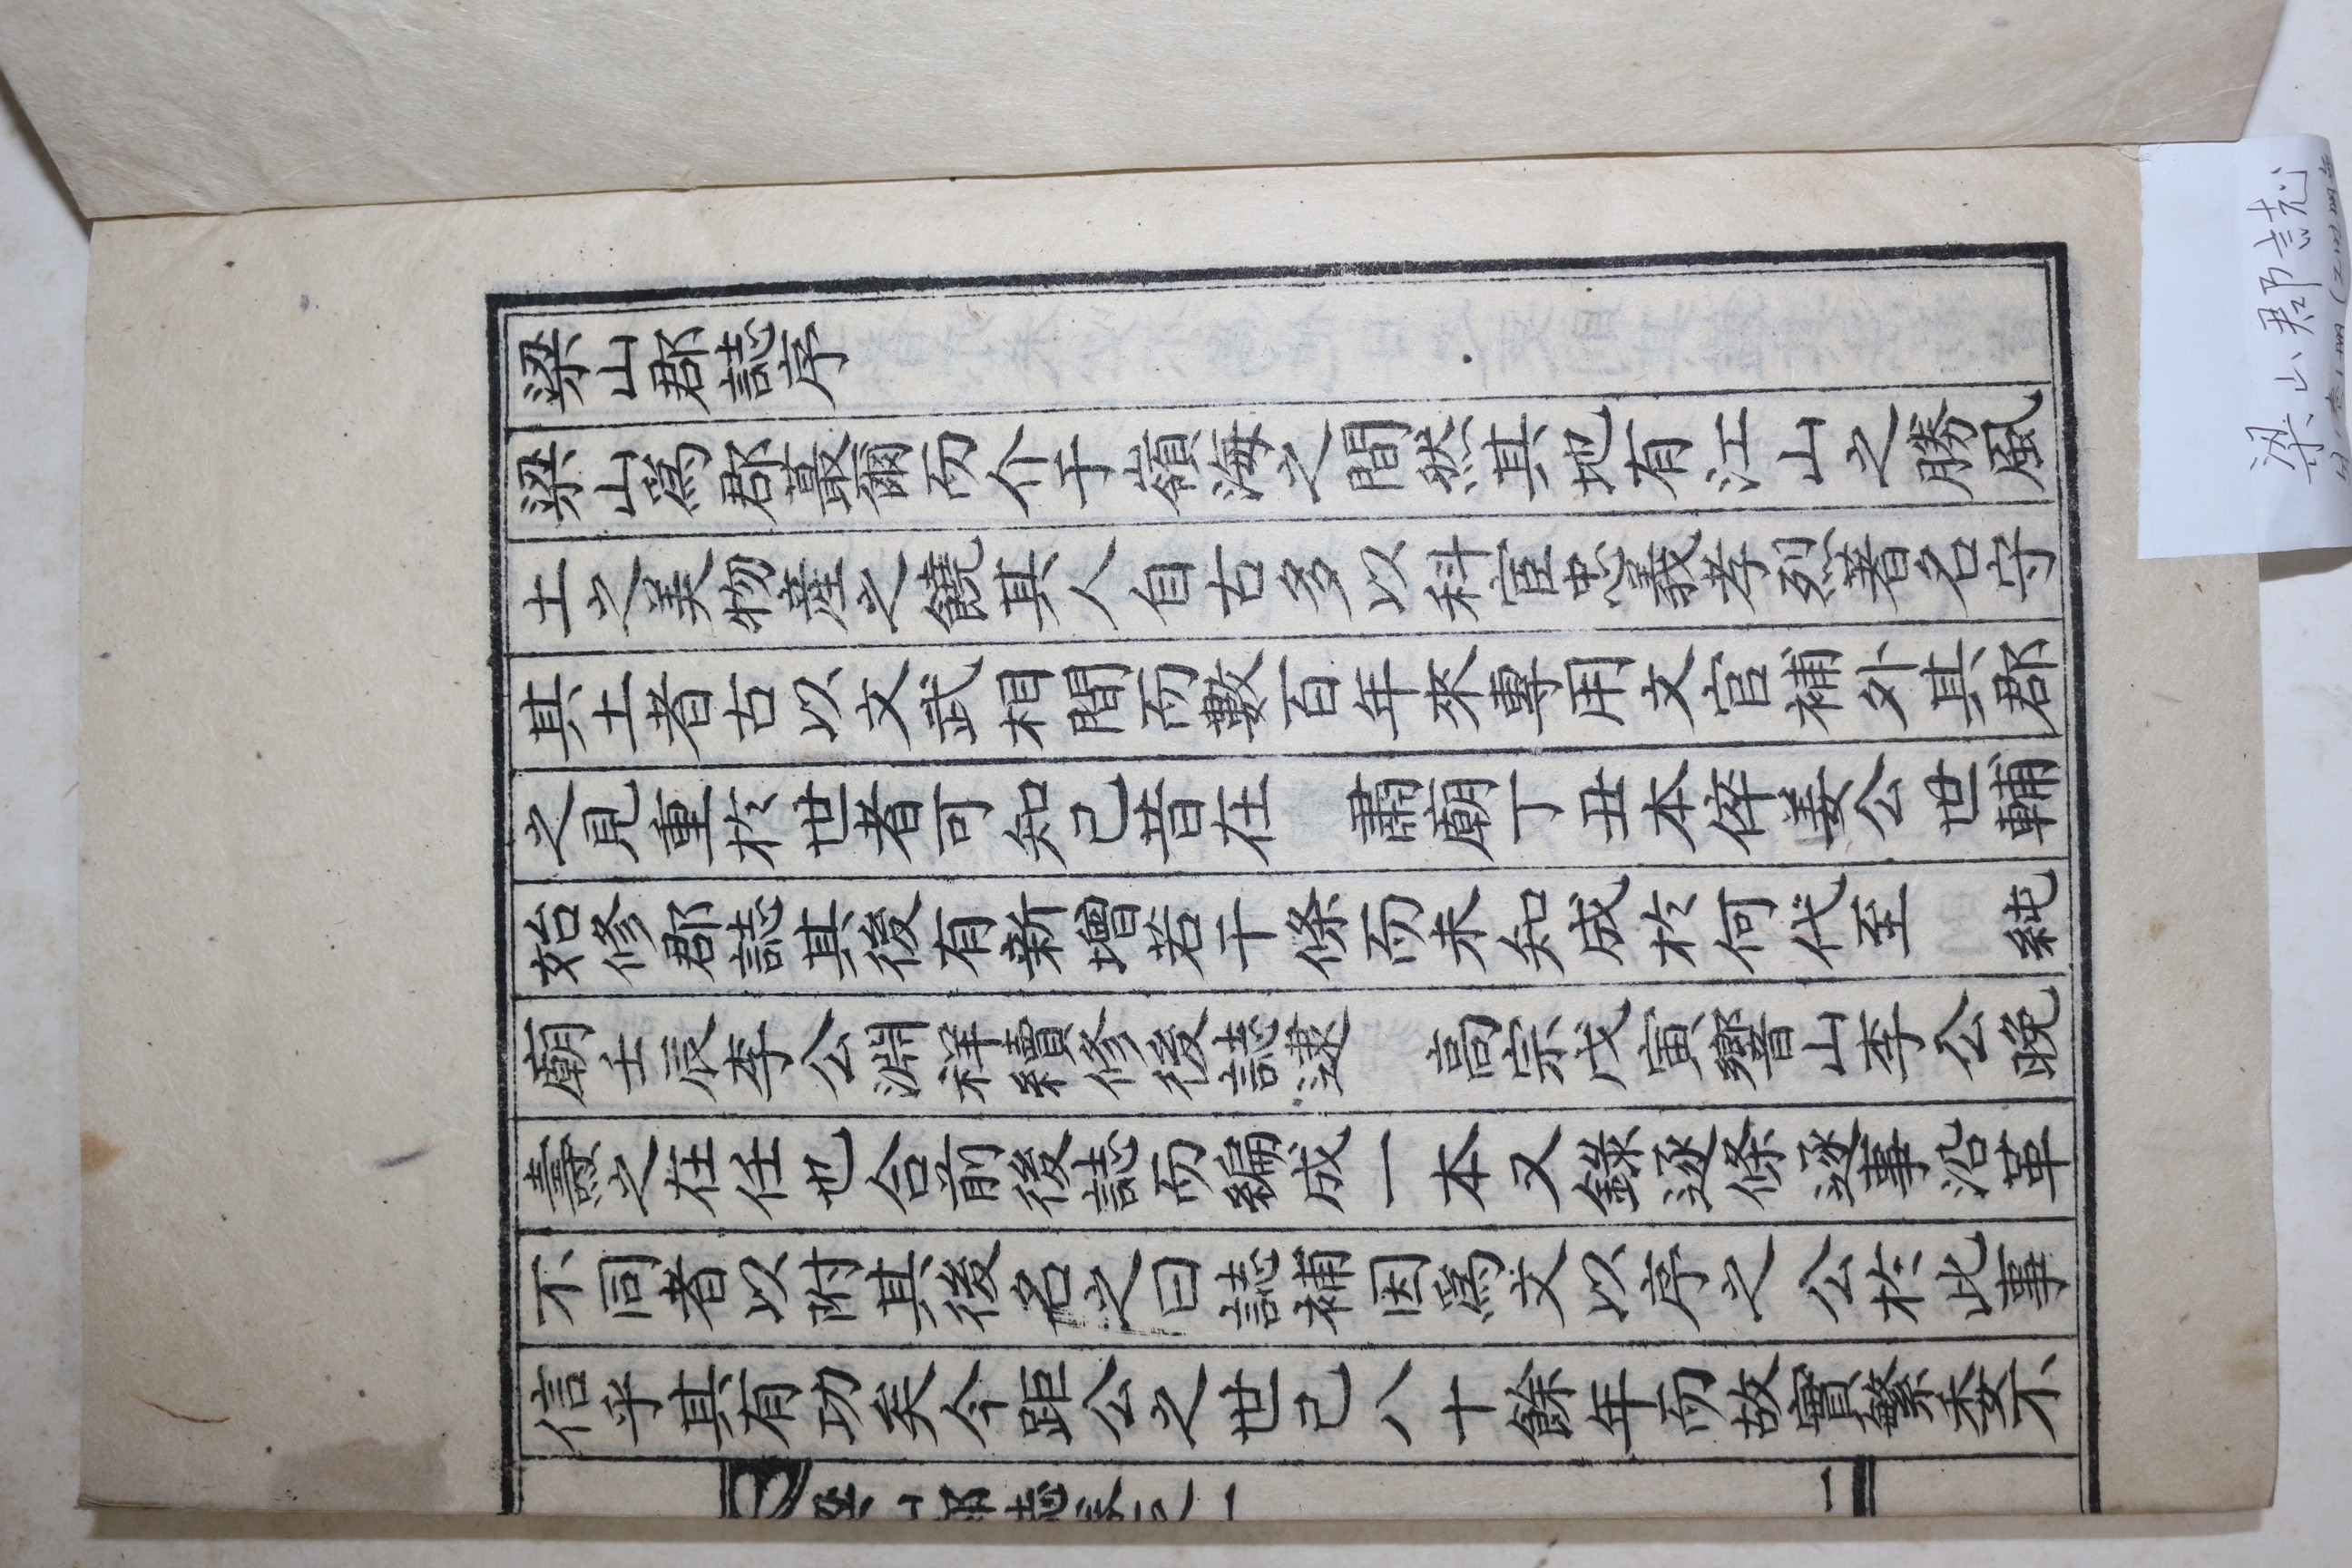 梁山郡誌序
梁山爲郡蕞爾而介于嶺海之間然其地有江山之勝風
土之美物産之饒其人自古多以科宦忠義孝烈著名守
其土者古以文武相間而數百年來專用文官補外其郡
之見重於世者可知己昔在 肅廟丁丑本倅姜公世輔
始修郡誌其後有新增若干條而未知成於何代至 純
廟壬辰李公淵祥續修後誌逮 高宗戊寅響山李公晚
壽之在任也合前後誌而編成一本又錄逐條逐事沿革
不同者以附其後名之曰誌補因爲文以序之公於此事
信乎其有功矣今距公之世己八十餘年而故實繁委不
梁山郡誌卷之一
二
梁山郡誌